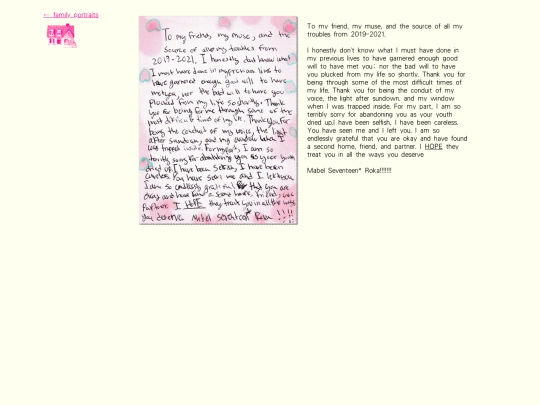 ← family portraits
To my friend, my muse, and the
source of all my troubles from
2019-2021. I honestly don't know what
I must have done in my previous lives to
have garnered enough good will to have
met you, nor the bad will to have you
plucked from my life so shortly. Thank
you for being for me through some of the
most difficult times of my life. Thank you for
being the conduit of my voice, the light
after sundown, and my window when I
was trapped inside. For my part, I am so
terribly sorry for abandoning you as your youth
dried up. I have been selfish, I have been
careless. You have seen me and I left you.
I am so endlessly grateful that you are
okay and have found a second home, friend, and
partner. I HOPE they treat you in all the ways
you deserve. Mabel Seventeen Roka !!!!
To my friend, my muse, and the source of all my
troubles from 2019-2021.
I honestly don't know what I must have done in
my previous lives to have garnered enough good
will to have met you; nor the bad will to have
you plucked from my life so shortly. Thank you for
being through some of the most difficult times of
my life. Thank you for being the conduit of my
voice, the light after sundown. and my window
when I was trapped inside. For my part, I am so
terribly sorry for abandoning you as your youth
dried up.I have been selfish, I have been careless.
You have seen me and I left you. I am so
endlessly grateful that you are okay and have found
a second home, friend, and partner. I HOPE they
treat you in all the ways you deserve
Mabel Seventeen* Roka!!!!!!!